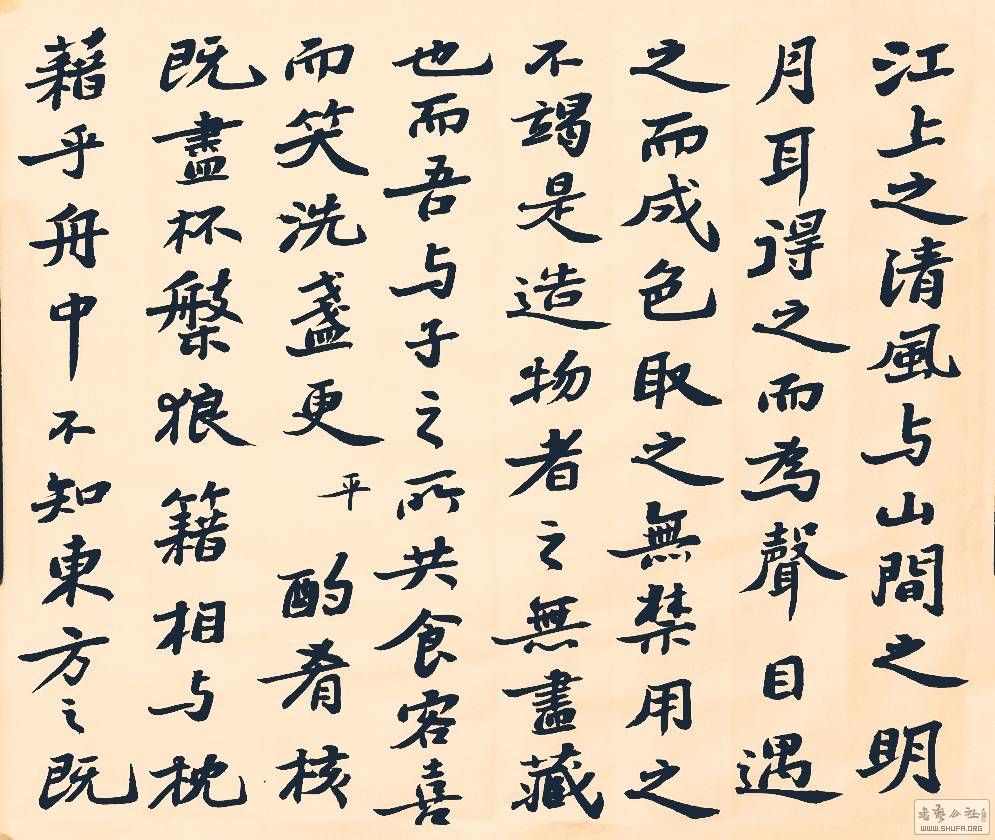 江上之清風与山間之明
月耳得之而為聲目遇
之而成色取之無禁用之
不竭是造物者之無盡藏
也而吾与子之所共食客喜
而笑洗盞更平酌肴核
既盡杯槃狼籍相与枕
藉乎舟中不知東方之既
書藝公社
WWW.SHUFA.ORG